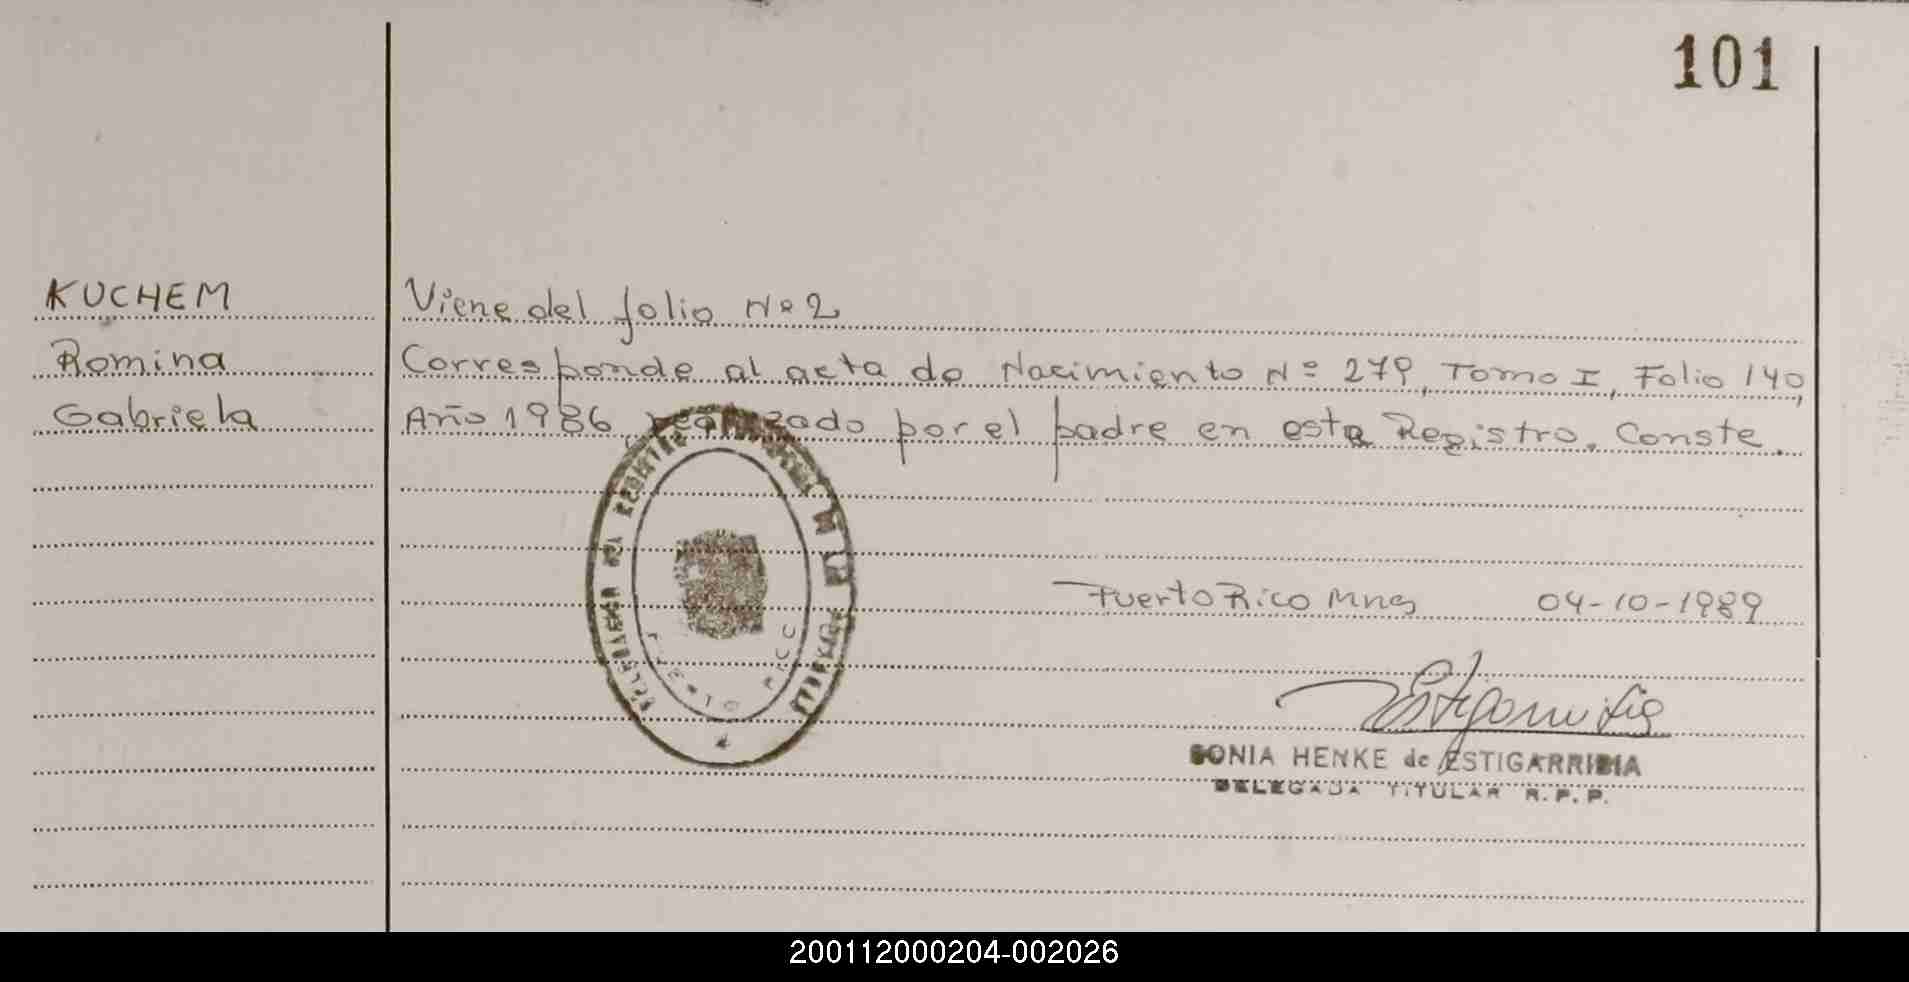 101
KUCHEM
Romina
Gabriela
Viene del folio Nº 2
Corresponde al acta de Nacimiento Nº 279, Tomo I, Folio 140,
Año 1986, realizado por el padre en este Registro. Conste.
Puerto Rico Mnes 04-10-1989
Estigarribia
SONIA HENKE de ESTIGARRIBIA
DELEGADA TITULAR R.P.P.
PUERTO RICO
200112000204-002026